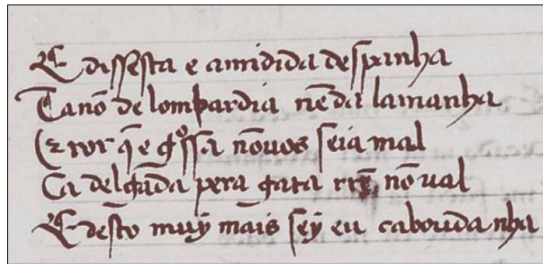 E dissesta e amidida despanha
Ca nō de lombardia nē da lamanha
E por q̄ e gossa nō uos seia mal
Ca delgada pera gata rrē nō ual
E desto muy mais sey eu cabouda nha